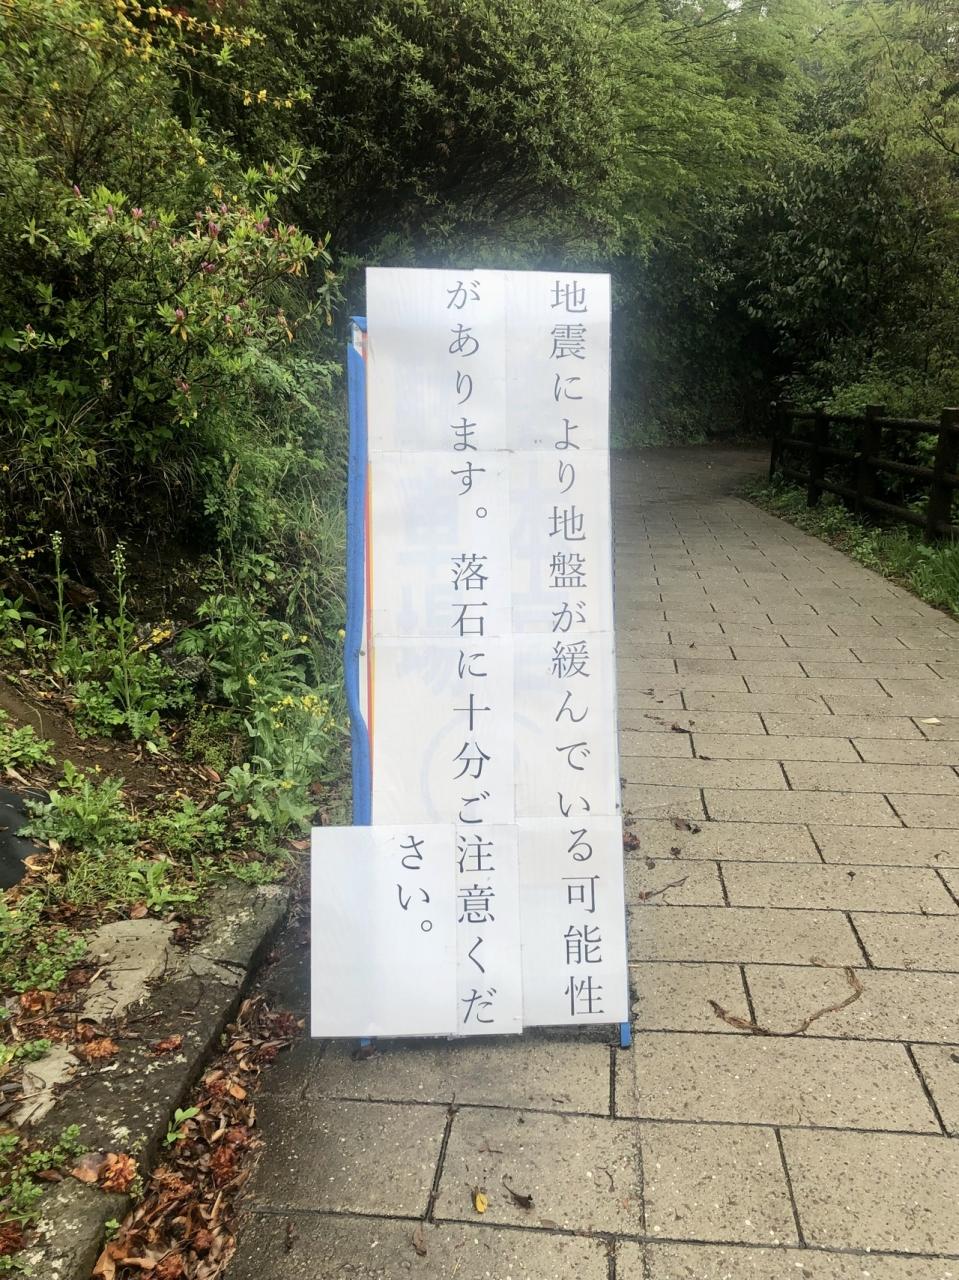 地震により地盤が緩んでいる可能性
があります。落石に十分ご注意くだ
さい。